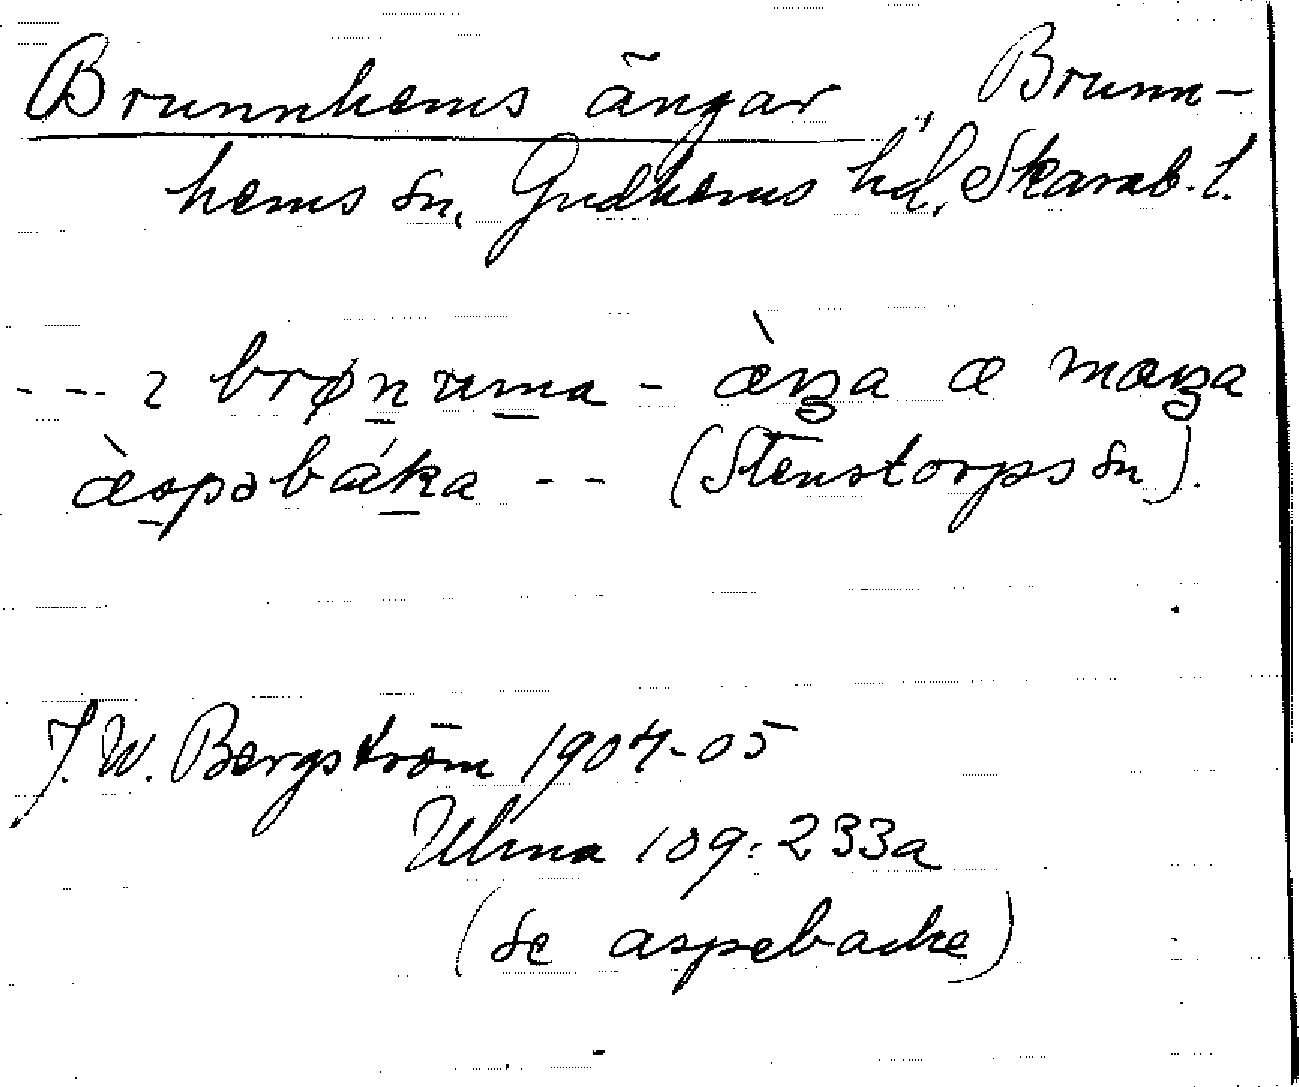 Brunnhems ängar, Brunn-
hems sn, Gudhems hd, Skarab. l.
--- ɩ brøn̲um̲a - æ̀ŋa æ mæŋa
æ̀s̲pəbák̲a -- (Stenstorps sn).
J. W. Bergström 1904-05
Ulma 109:233a
(se aspebacke)